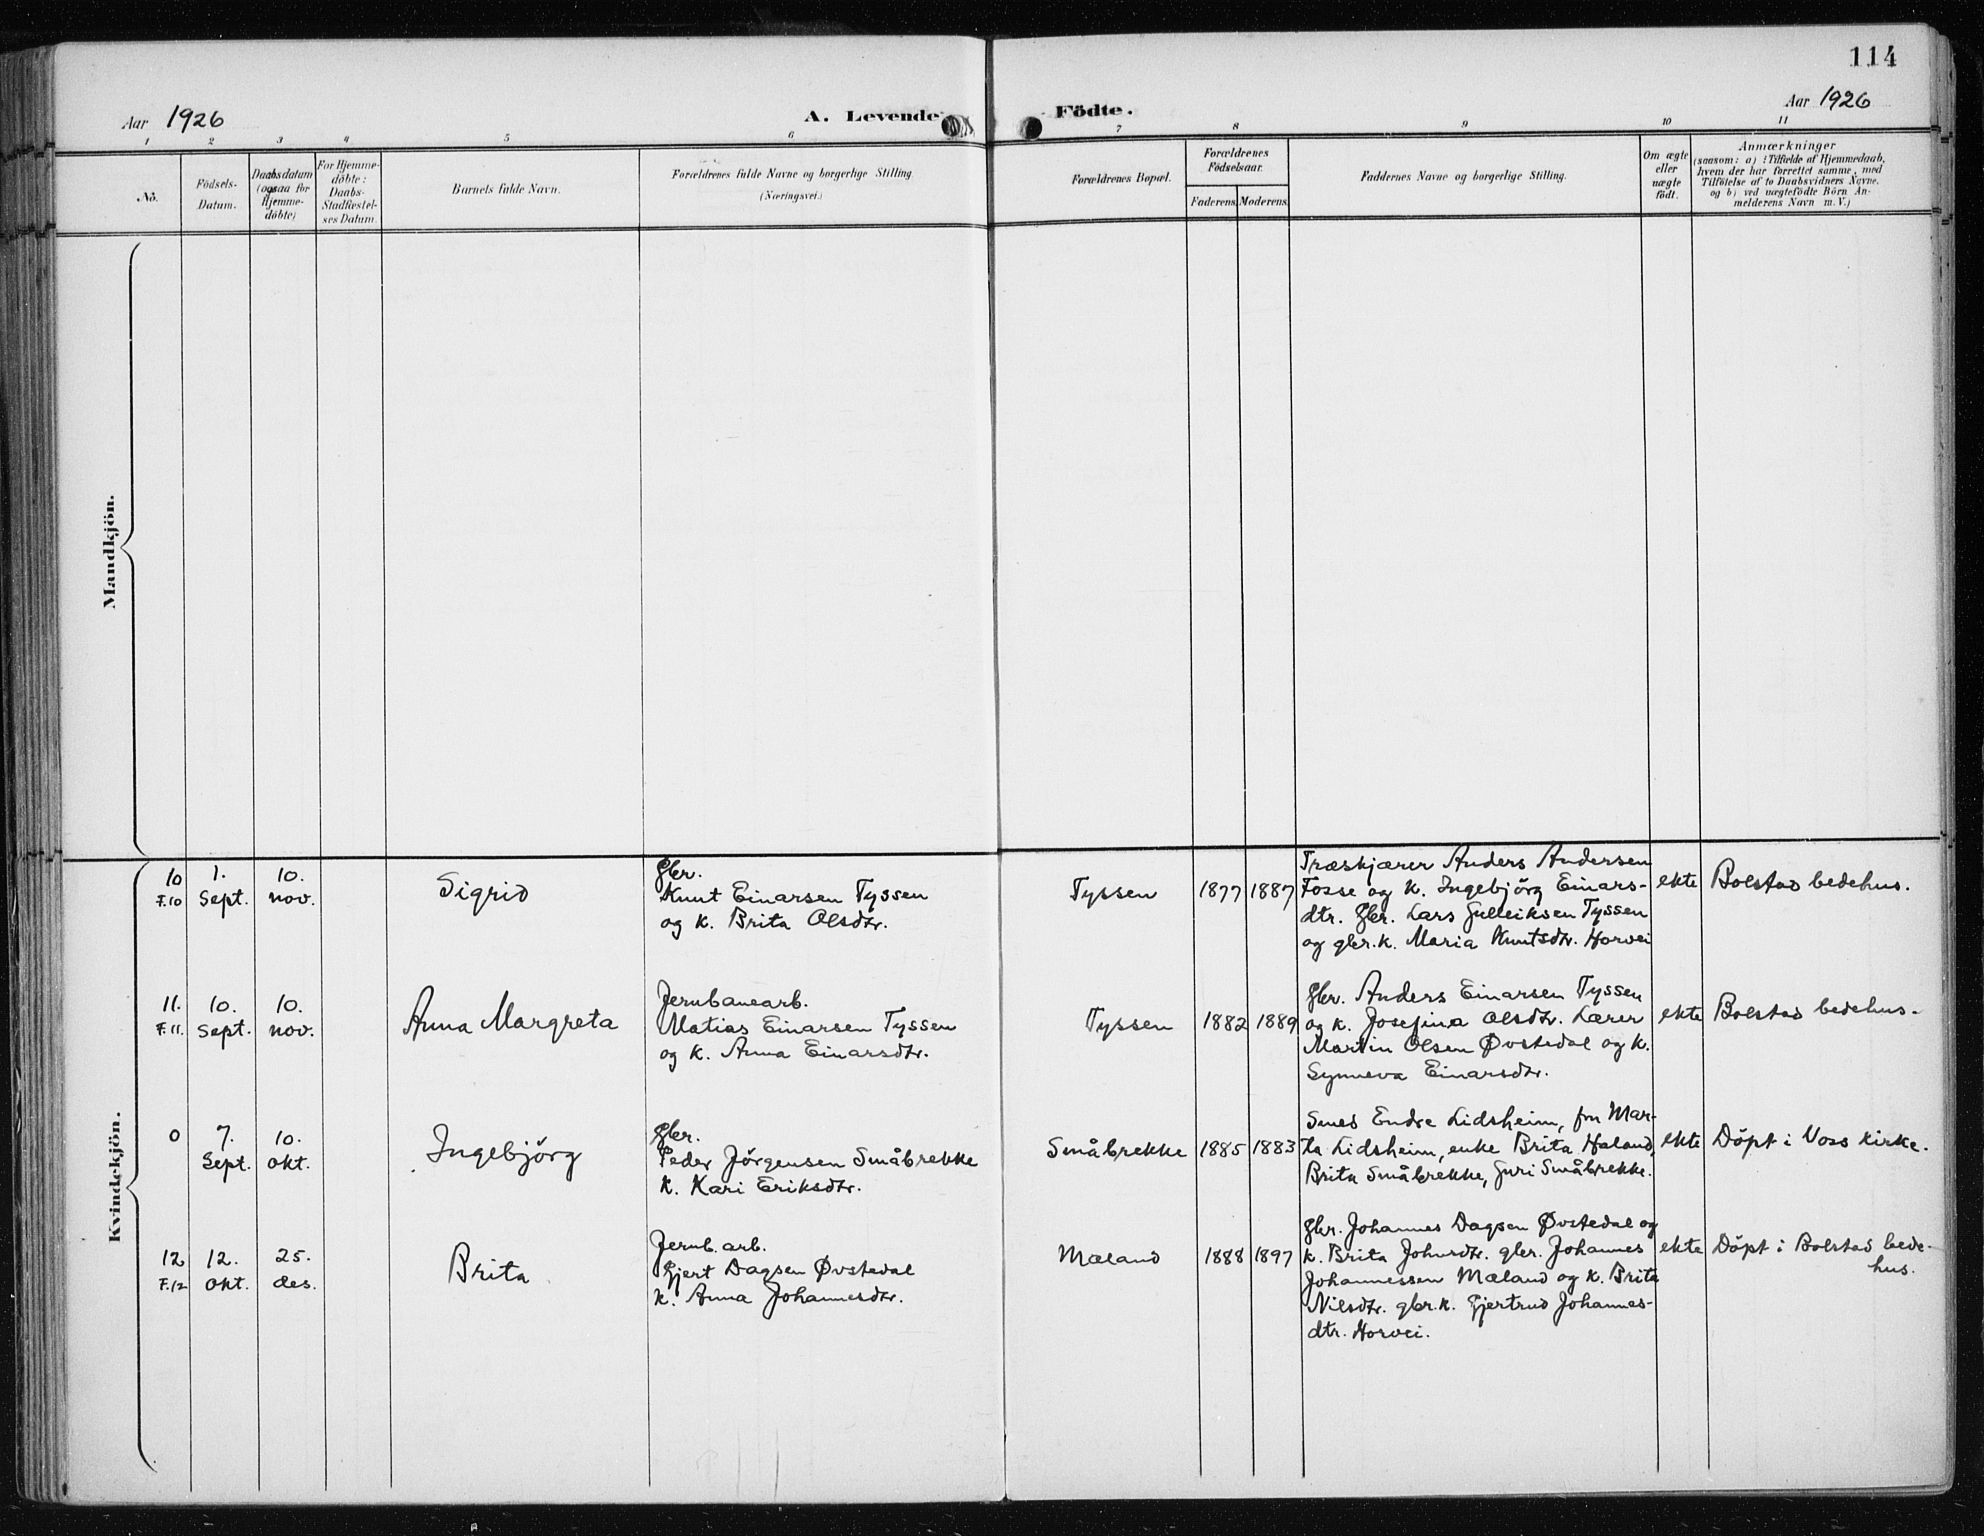 114
Aar 1926
A. Levende
Födte.
Aar 1926
1 2 3 4 5 6 7 8 9 10 11
No.
Födsels-
Datum.
Daabsdatum
(ogsaa for
Hjemme-
döbte)
For Hjemme-
döbte:
Daabs-
Stadfæstel-
ses Datum.
Barnets fulde Navn.
Forældrenes fulde Navne og borgerlige Stilling
(Næringsvei.)
Forældrenes Bopæl.
Forældrenes
Födselsaar.
Faderens. Moderens.
Faddernes Navne og borgerlige Stilling.
Om ægte
eller
uægte
födt.
Anmærkninger
(saasom: a) i Tilfælde af Hjemmedaab,
hvem der har forrettet samme, med
Tilföielse af to Daabsvidners Navne.
og b) ved uægtefödte Börn An-
melderens Navn m. V.)
Mandkjön.
Kvindekjön.
10
F.10
1.
Sept.
10.
nov.
Sigrid
Gbr.
Knut Einarsen Tyssen
og k. Brita Olsdtr.
Tyssen
1877
1887
Træskjærer Anders Andersen
Fosse og k. Ingebjörg Einars-
dtr. Gbr. Lars Gulleiksen Tyssen
og gbr.k. Maria Knutsdtr. Horvei
ekte
Bolstad bedehus.
11.
F.11.
10.
Sept.
10.
nov.
Anna Margreta
Jernbanearb.
Matias Einarsen Tyssen
og k. Anna Einarsdtr.
Tyssen
1882
1889
Gbr. Anders Einarsen Tyssen
og k. Josefina Olsdtr. Lærer
Martin Olsen Øvstedal og k.
Synneva Einarsdtr.
ekte
Bolstad bedehus.
0
7.
Sept.
10.
okt.
Ingebjörg
Gbr.
Peder Jörgensen Småbrekke
k. Kari Eriksdtr.
Småbrekke
1885
1883
Smed Endre Lidsheim, fru Mar-
ta Lidsheim, enke Brita Haland,
Brita Småbrekke, Guri Småbrekke.
ekte
Döpt i Voss kirke.
12
F.12
12.
okt.
25.
des.
Brita
Jernb.arb.
Gjert Dagsen Øvstedal
k. Anna Johannesdtr.
Mæland
1888
1897
Gbr. Johannes Dagsen Øvstedal og
k. Brita Johnsdtr. gbr. Johannes
Johannessen Mæland og k. Brita
Nilsdtr. gbr.k. Gjertrud Johannes-
dtr. Horvei.
ekte
Döpt i Bolstad bede-
hus.